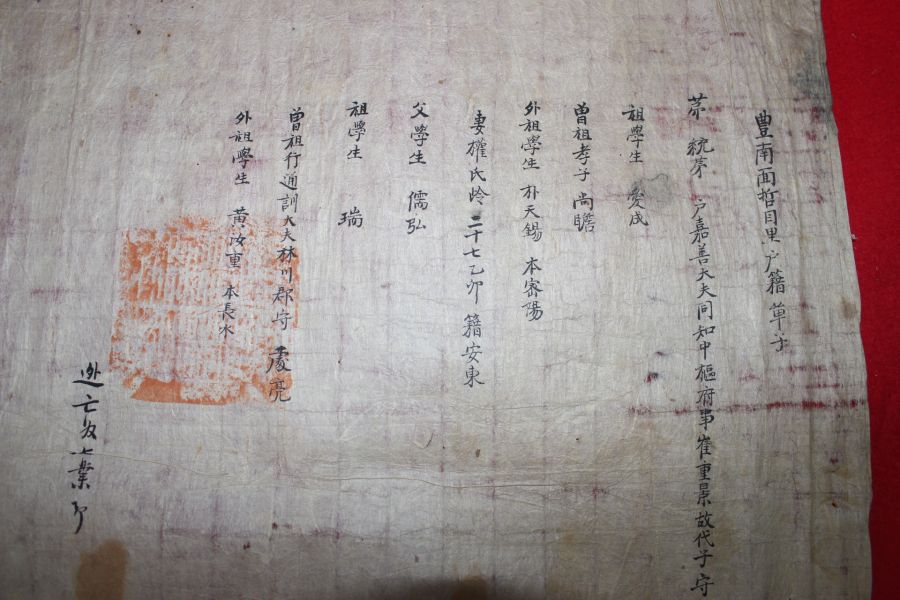 豊南面哲目里戶籍單子
茅 統茅 戶嘉善大夫同知中樞府事崔重景故代子守
祖學生 愛成
曽祖孝子 尚瞻
外祖學生 朴天錫 本密陽
妻權氏齡二十七乙卯 籍安東
父學生 儒弘
祖學生 瑞
曽祖行通訓大夫林川郡守 處亮
外祖學生 黃汝重 本長水